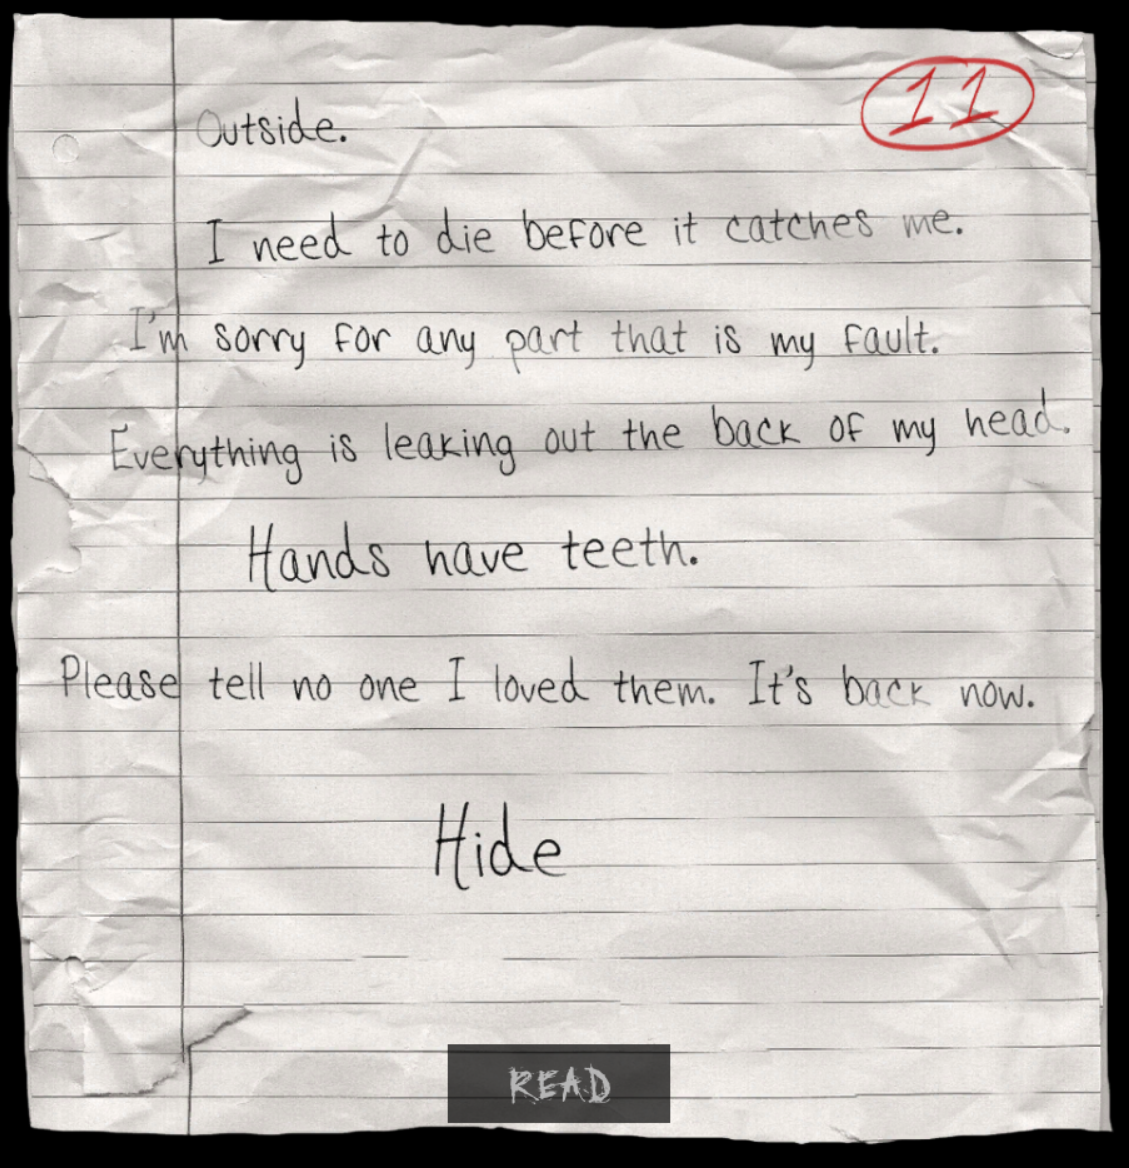 11
Outside.
I need to die before it catches me.
I'm sorry for any part that is my fault.
Everything is leaking out the back of my head.
Hands have teeth.
Please tell no one I loved them. It's back now.
Hide
READ